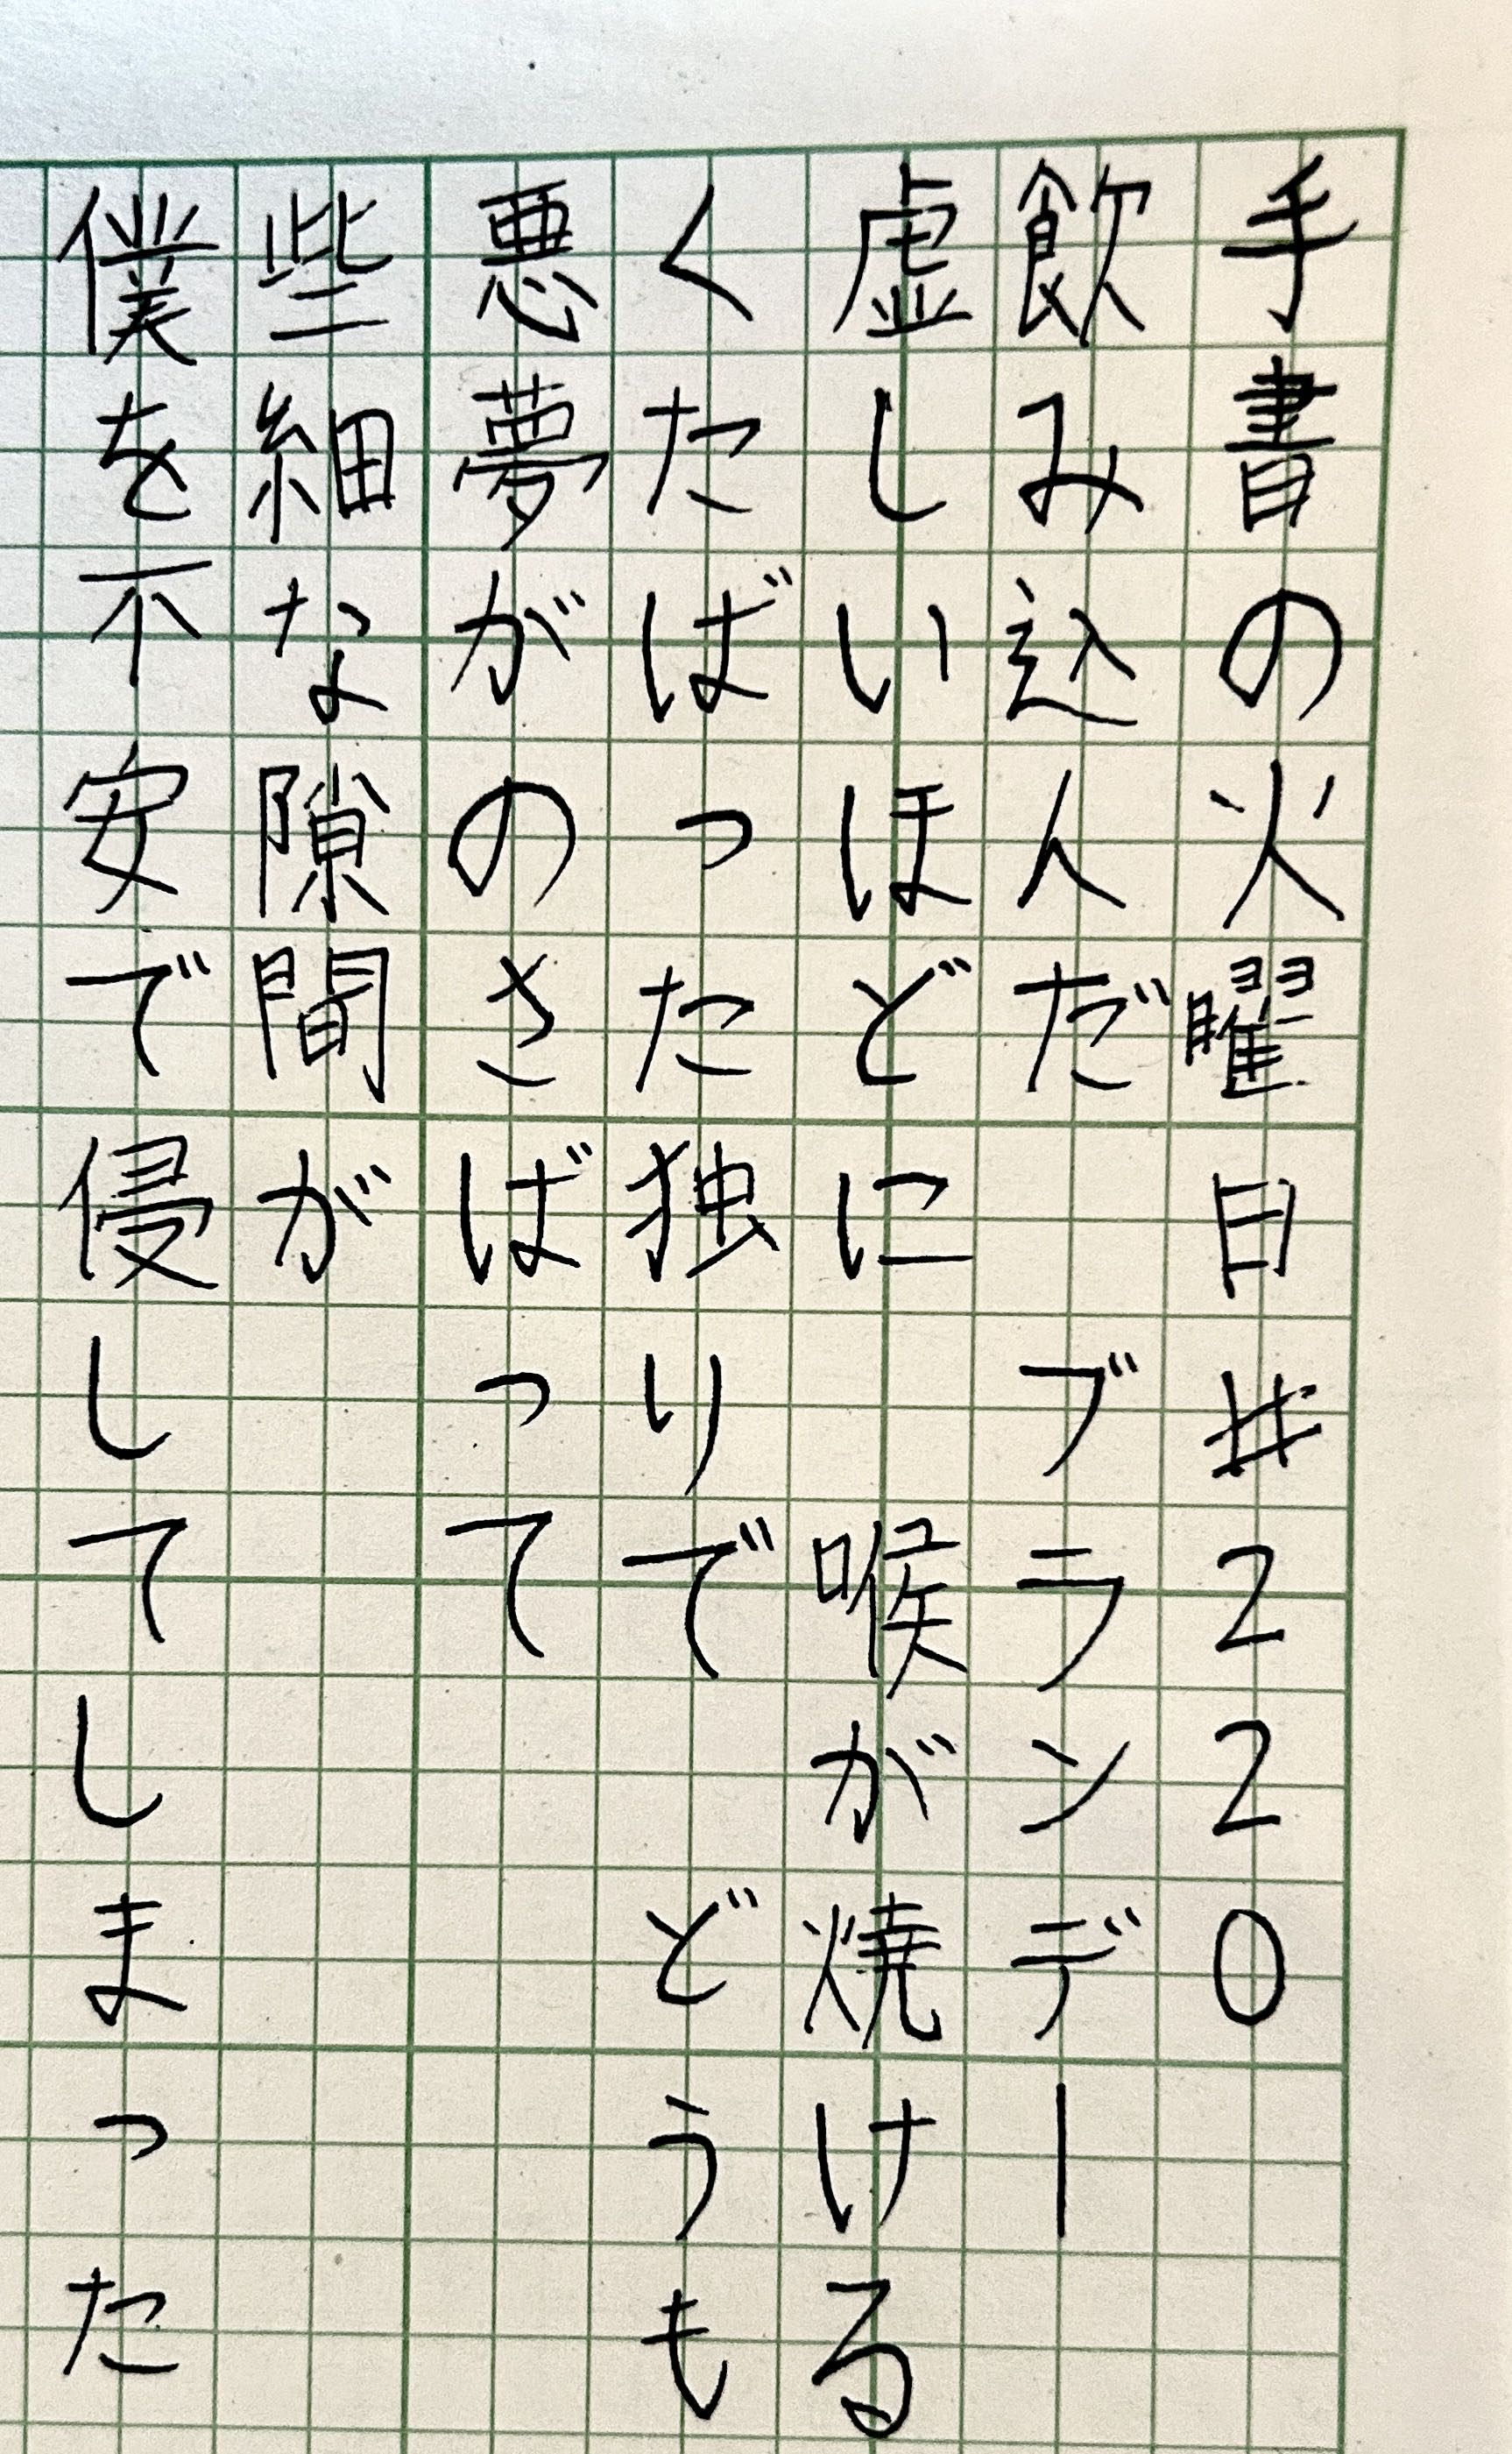 手書の火曜日#220
飲み込んだ ブランデー
虚しいほどに 喉が焼ける
くたばったた独りで どうも
悪夢がのさばって
些細な隙間が
僕を不安で侵してしまった